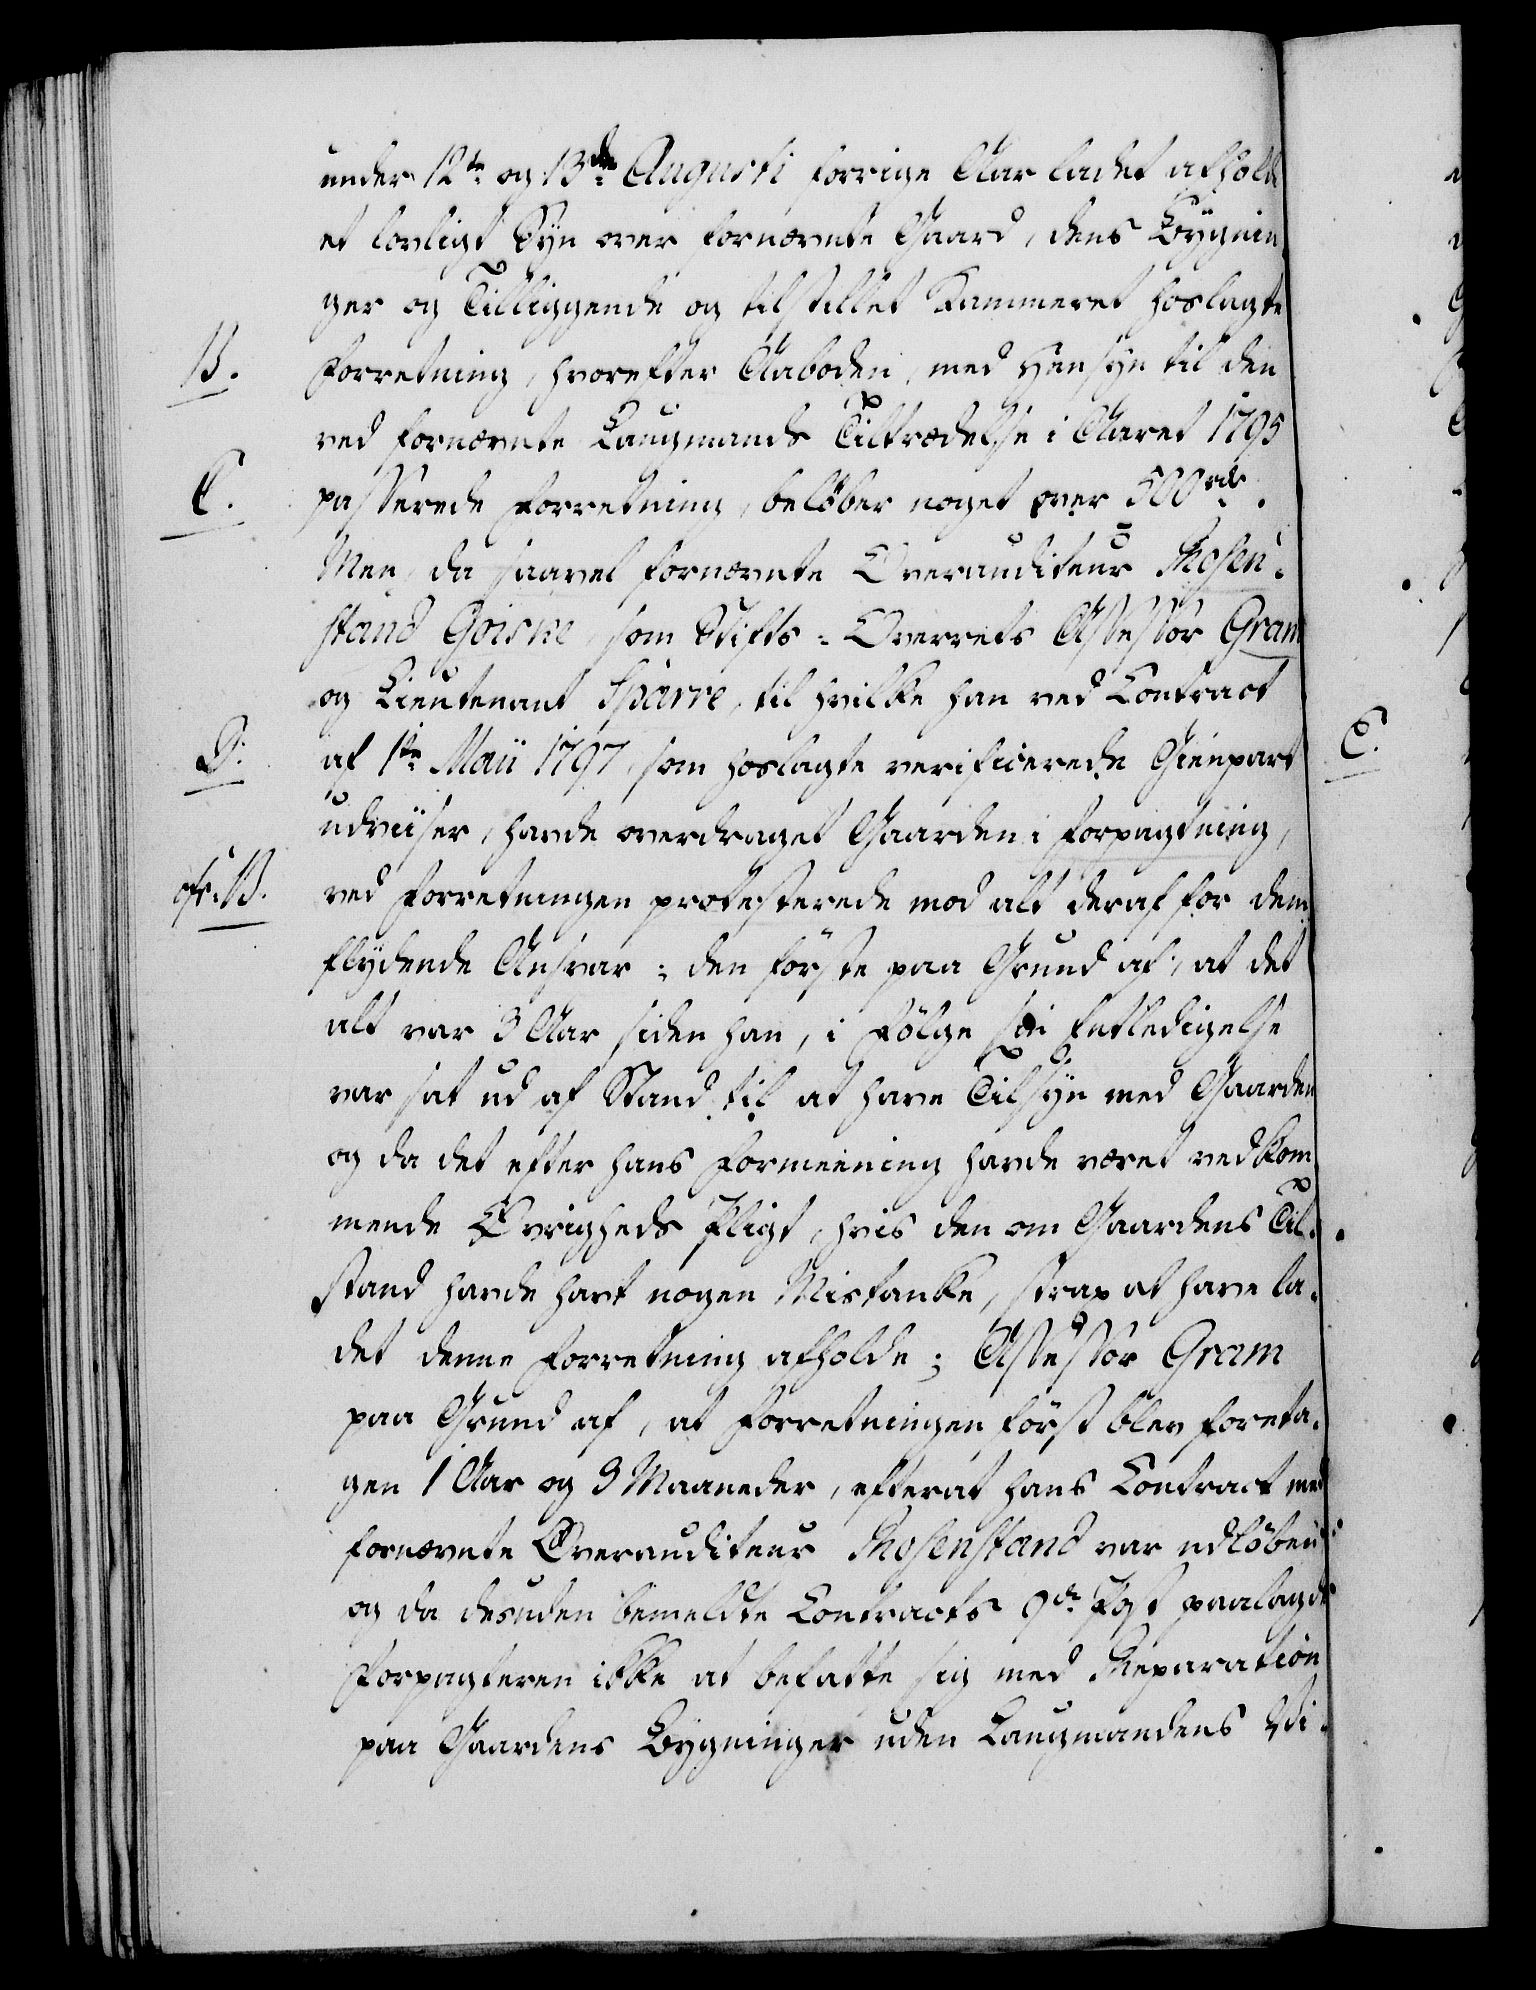 under 12te og 13de Augusti forrige Aar ladet afholde
et lovligt Syn over fornævnte Gaard, dens Bygnin
ger og Tilliggende og tilstillet Kammeret hoslagte
B. Forretning, hvorefter Aaboden, med Hensyn til den
ved fornævnte Laugmands Tiltrædelse i Aaret 1795
C. passerede Forretning, beløber noget over 500 rdr.
Men, da saavel fornævnte Overauditeur Rosen-
stand Goiske, som Stifts-Overrets Assessor Gram
og Lieutenant Sparre, til hvilke han ved Contract
D. af 1te Maii 1797, som hoslagte verificerede Gienpart
udviiser, havde overdraget Gaarden i Forpagtning,
cfr. B. ved Forretningen protesterede mod alt deraf for dem
flydende Ansvar: den første paa Grund af, at det
alt var 3 Aar siden han, i Følge sin Entledigelse
var sat ud af Stand til at have Tilsyn med Gaarden
og da det efter hans Formeening havde været vedkom
mende Øvrigheds Pligt, hvis den om Gaardens Til-
stand havde havt nogen Mistanke, strax at have la-
det denne Forretning afholde; Assessor Gram
paa Grund af, at Forretningen først blev foreta-
gen 1 Aar og 3 Maaneder, efterat hans Contract med
fornævnte Overauditeur Rosenstand var udløben
og da desuden bemeldte Contracts 9de Post paalagde
Forpagteren ikke at befatte sig med Reparation
paa Gaardens Bygninger uden Laugmandens Vi-
E.